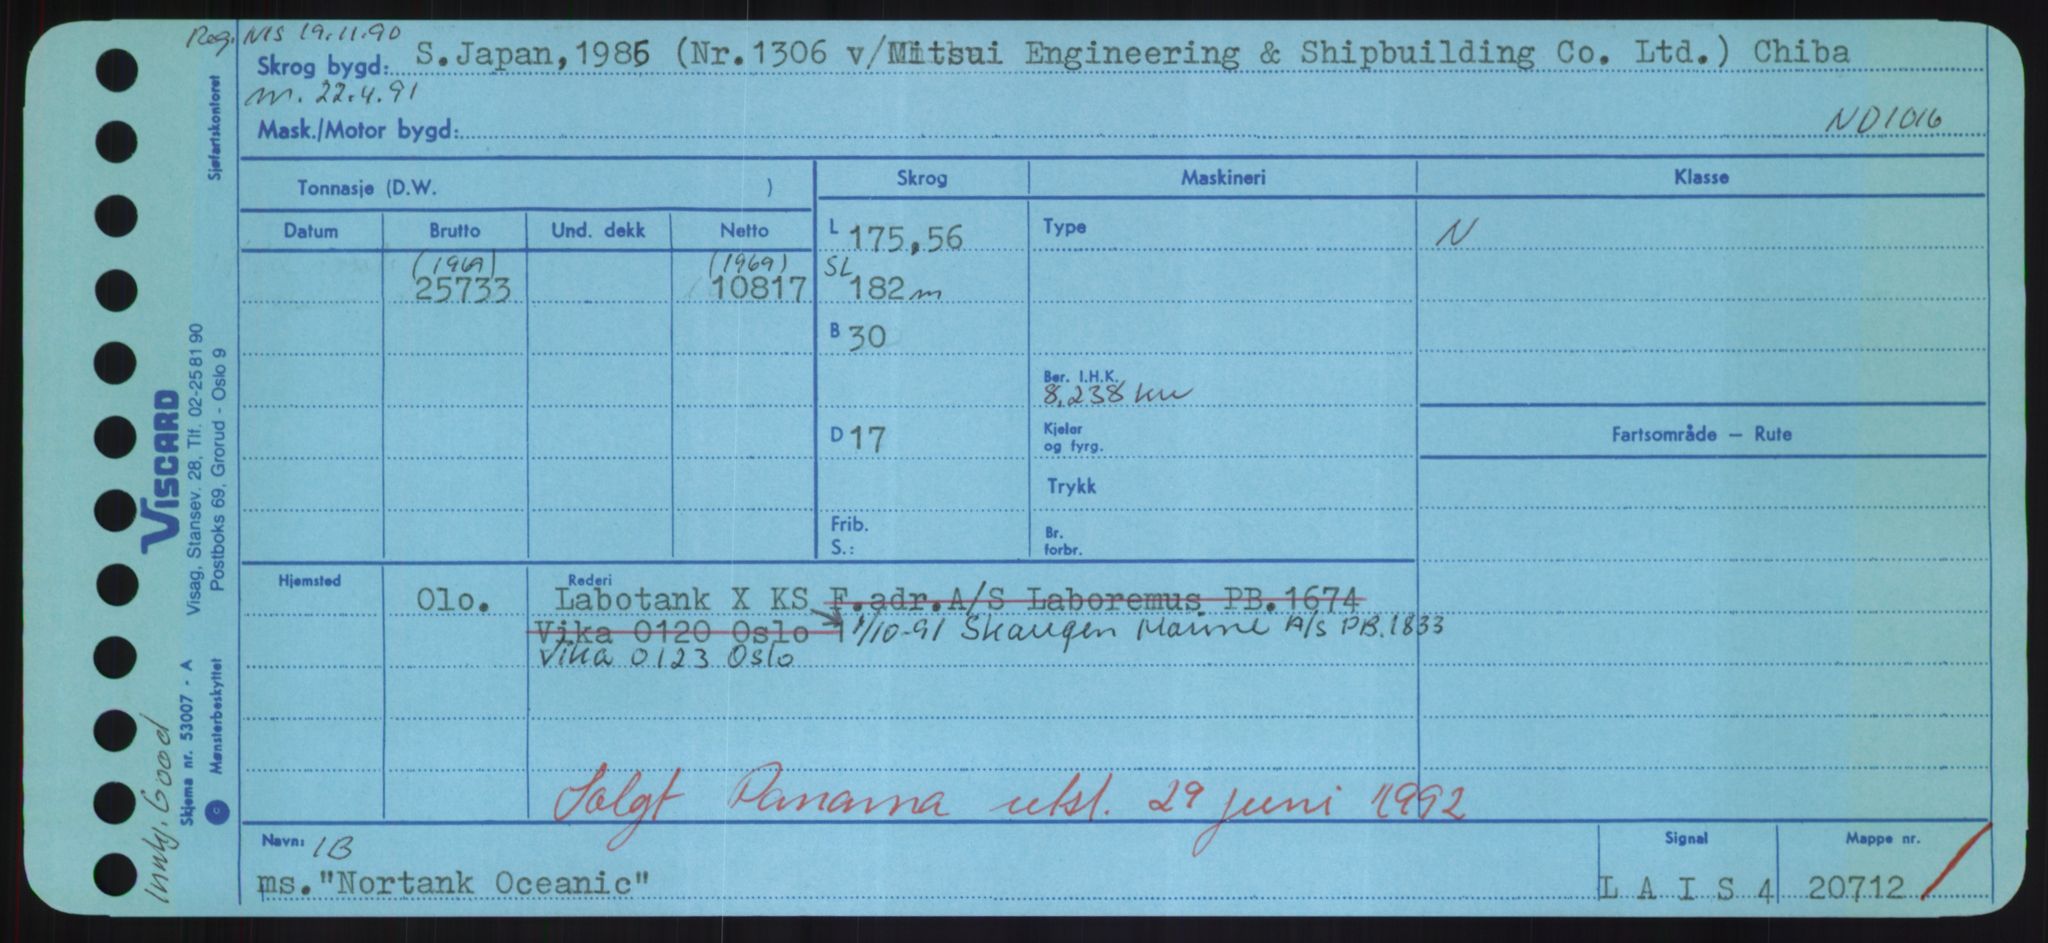 Reg. NIS 19.11.90
Skrog bygd: S.Japan,1985 (Nr.1306 v/Mitsui Engineering & Shipbuilding Co. Ltd.) Chiba
m. 22.4.91
Mask./Motor bygd: ND1016
Tonnasje (D.W. )
Skrog Maskineri Klasse
Datum Brutto Und. dekk Netto
L 175,56 Type N
(1969) (1969) SL
25733 10817 182 m
B 30
Bør. I.H.K.
8,238 kw
D 17 Kjeler
og fyrg.
Fartsområde — Rute
Trykk
Frib.
S.:
Br.
forbr.
Hjemsted Rederi
Olo. Labotank X KS F.adr.A/S Laboremus PB.1674
Vika 0120 Oslo 11/10-91 Skaugen Marine A/S PB.1833
Vika 0123 Oslo
Solgt Panama utsl. 29 juni 1992
Navn: 1B Signal Mappe nr.
ms."Nortank Oceanic" L A I S 4 20712
Sjøfartskontoret
VISCARD
Visag, Stansev. 28, Tlf. 02-25 81 90
Postboks 69, Grorud - Oslo 9
Skjema nr. 53007 - A
© Mønsterbeskyttet
Innhj. Good